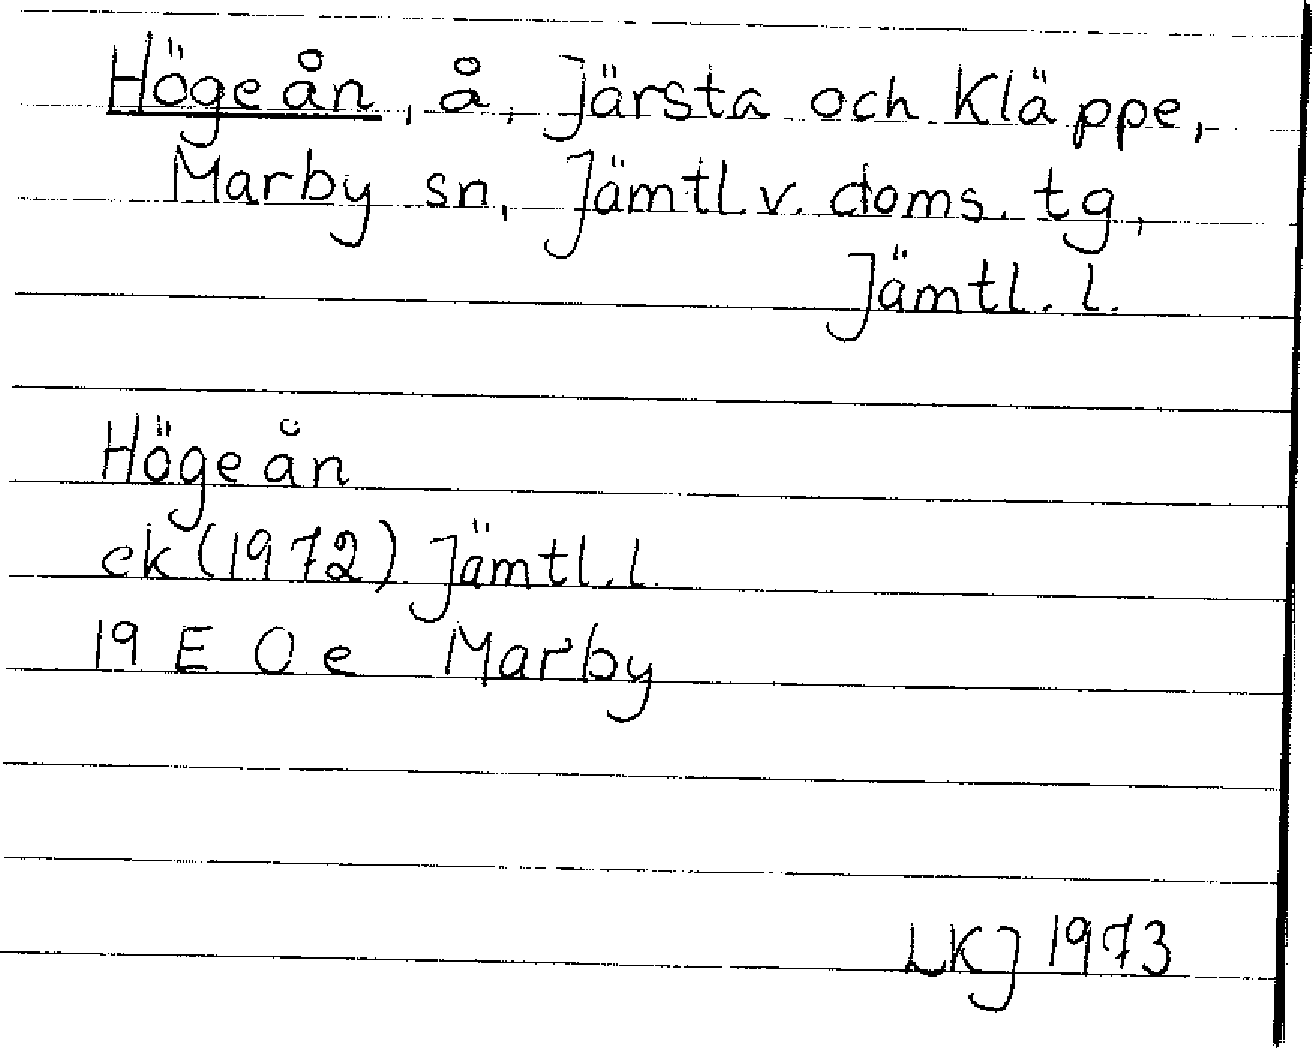 Högeån, å, Järsta och Kläppe,
Marby sn, Jämtl. v. doms. tg,
Jämtl. l.
Högeån
ek (1972) Jämtl. l.
19 E 0 e Marby
LKJ 1973